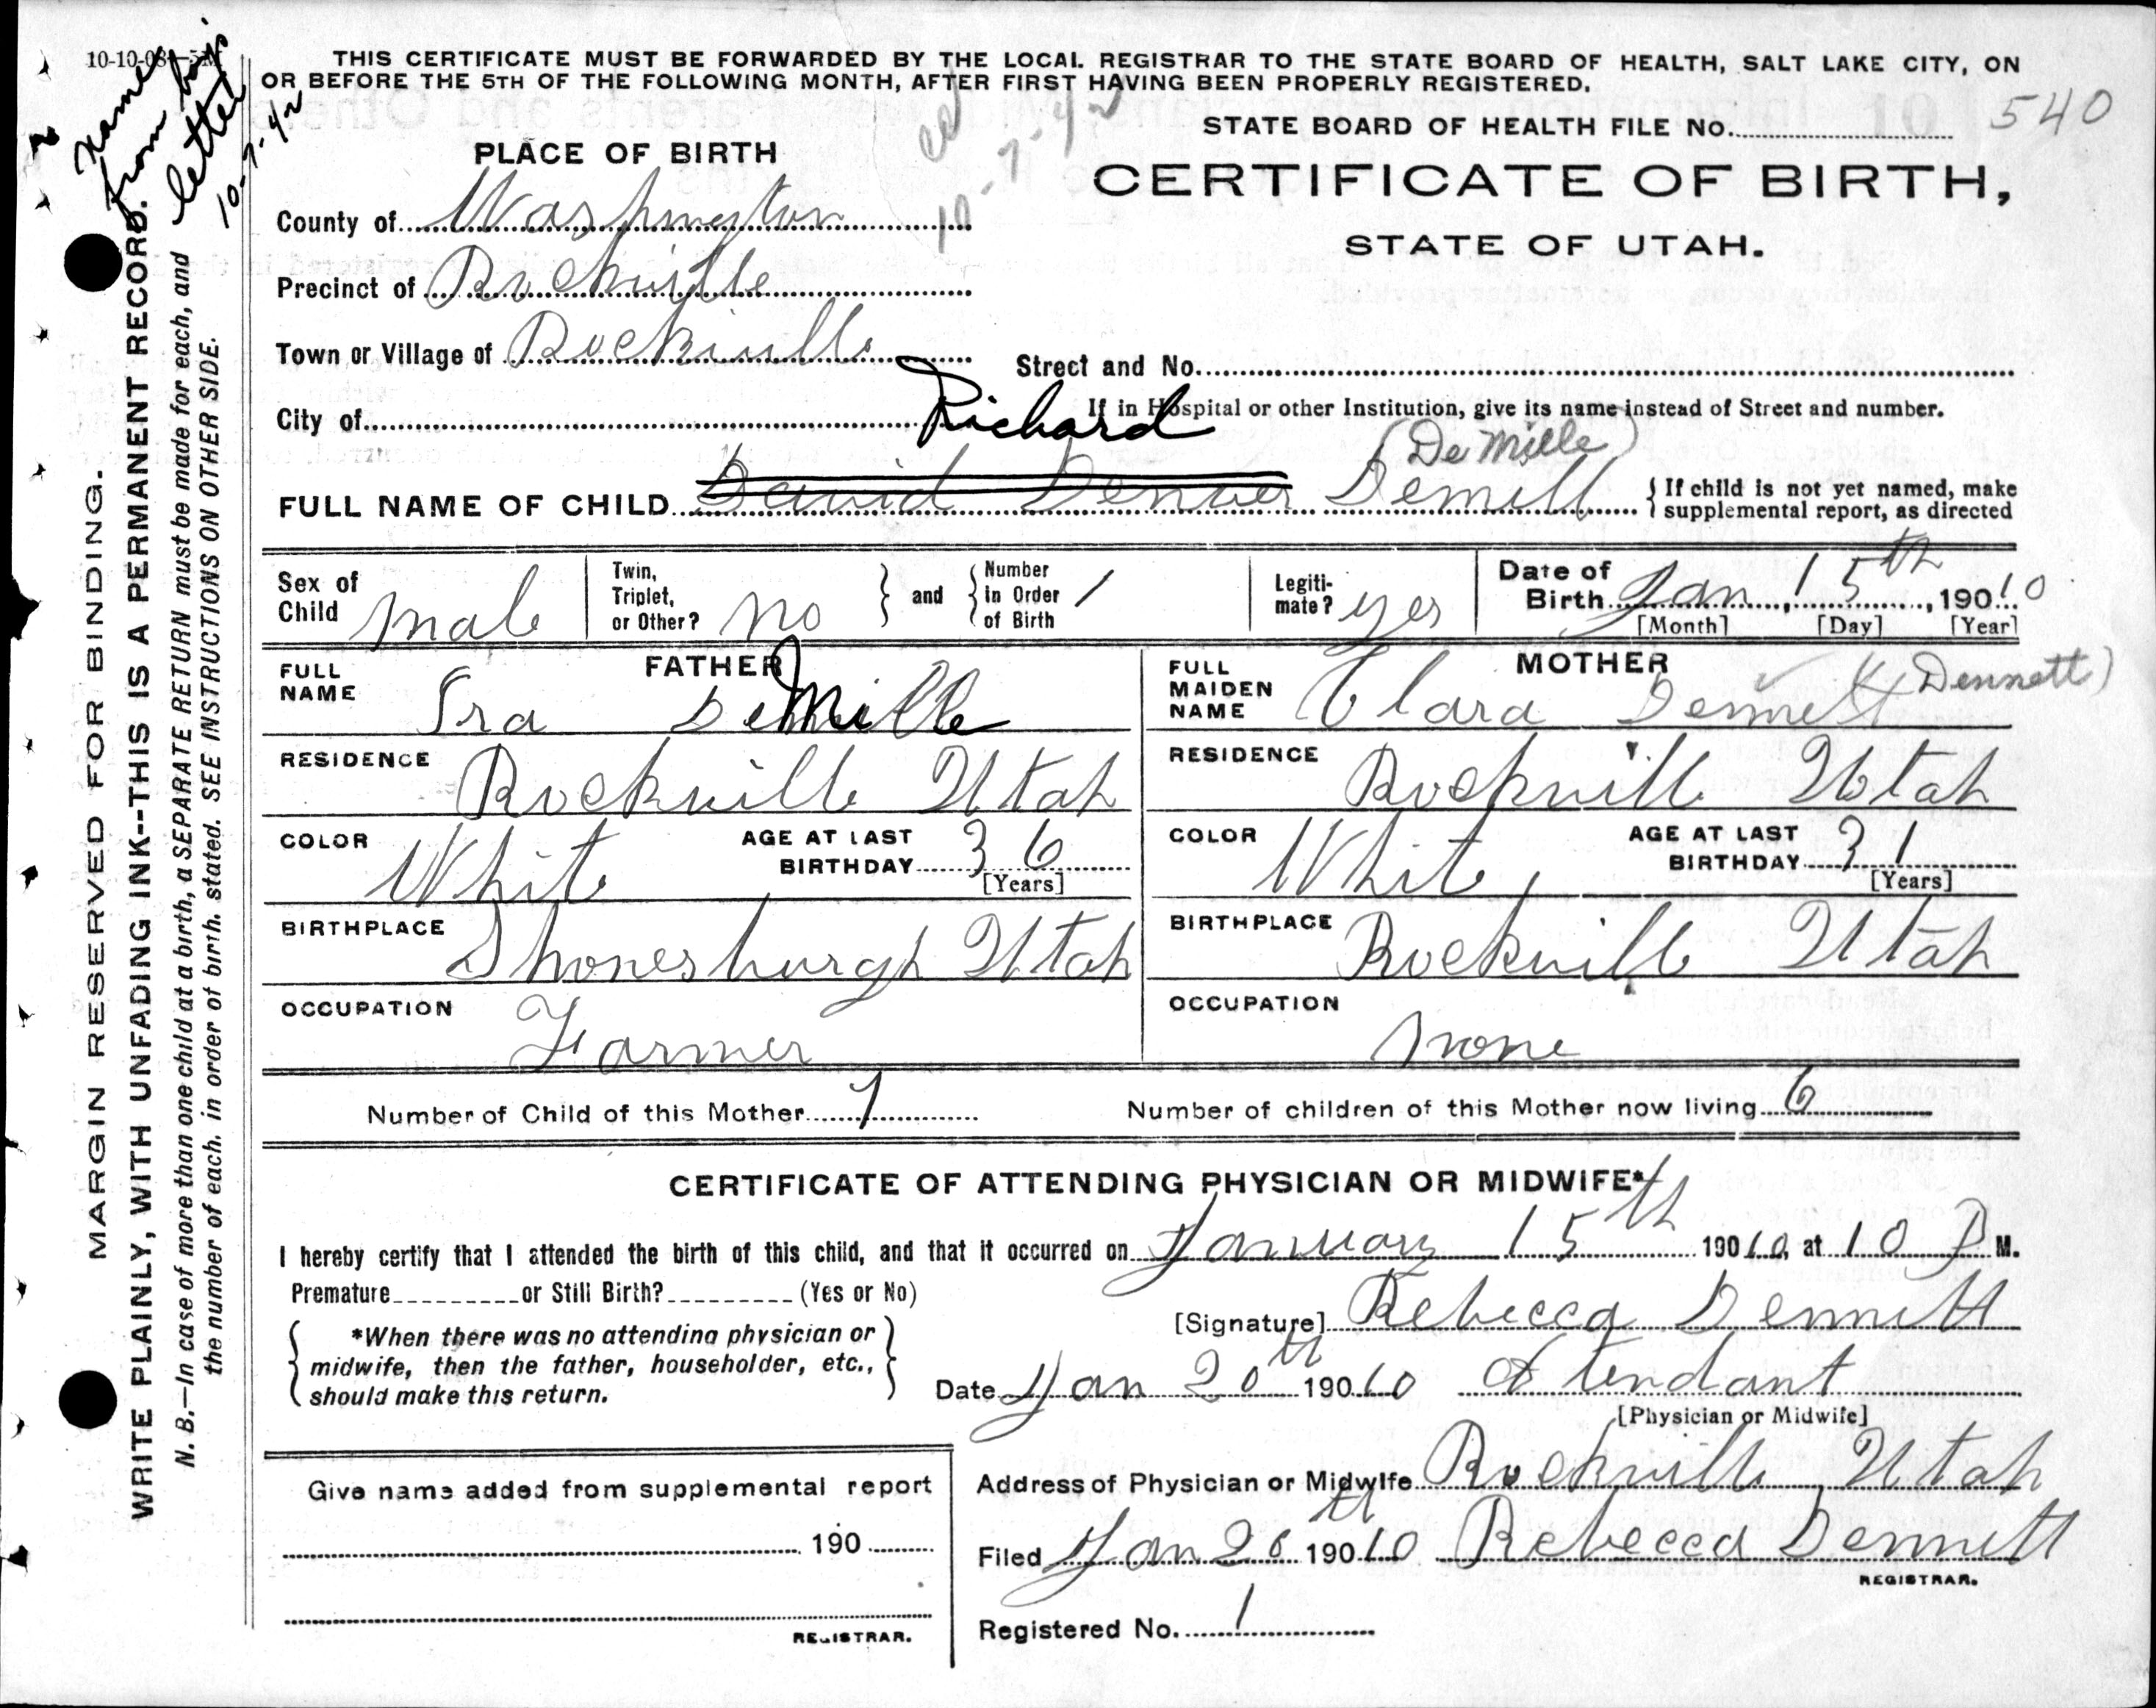 10-10-08—5M
Name
from boy's
letter
10-7-42
THIS CERTIFICATE MUST BE FORWARDED BY THE LOCAL REGISTRAR TO THE STATE BOARD OF HEALTH, SALT LAKE CITY, ON
OR BEFORE THE 5TH OF THE FOLLOWING MONTH, AFTER FIRST HAVING BEEN PROPERLY REGISTERED.
10-7-42
STATE BOARD OF HEALTH FILE No. 540
PLACE OF BIRTH
CERTIFICATE OF BIRTH,
STATE OF UTAH.
County of Washington
Precinct of Rockville
Town or Village of Rockville
Street and No.
City of
If in Hospital or other Institution, give its name instead of Street and number.
Richard
(DeMille)
FULL NAME OF CHILD David Denver Demill
{ If child is not yet named, make
supplemental report, as directed
Sex of Child male
Twin, Triplet, or Other? no } and { Number in Order of Birth 1
Legitimate? yes
Date of Birth Jan, 15th, 1901.0
[Month] [Day] [Year]
FATHER
FULL NAME Ira DeMille
RESIDENCE Rockville Utah
COLOR White AGE AT LAST BIRTHDAY 36
[Years]
BIRTHPLACE Shonesburgh Utah
OCCUPATION Farmer
MOTHER
FULL MAIDEN NAME Clara Dennett (Dennett)
RESIDENCE Rockville Utah
COLOR White AGE AT LAST BIRTHDAY 31
[Years]
BIRTHPLACE Rockville Utah
OCCUPATION None
Number of Child of this Mother 7 Number of children of this Mother now living 6
CERTIFICATE OF ATTENDING PHYSICIAN OR MIDWIFE*
I hereby certify that I attended the birth of this child, and that it occurred on January 15th 19010, at 10 P M.
Premature or Still Birth? (Yes or No)
*When there was no attending physician or
midwife, then the father, householder, etc.,
should make this return.
[Signature] Rebecca Dennett
Date Jan 20th 19010 Atendant
[Physician or Midwife]
Address of Physician or Midwife Rockville, Utah
Filed Jan 20th 19010 Rebecca Dennett
REGISTRAR.
Registered No. 1
Give name added from supplemental report
190
REGISTRAR.
MARGIN RESERVED FOR BINDING.
WRITE PLAINLY, WITH UNFADING INK--THIS IS A PERMANENT RECORD.
N. B.—In case of more than one child at a birth, a SEPARATE RETURN must be made for each, and
the number of each, in order of birth, stated. SEE INSTRUCTIONS ON OTHER SIDE.